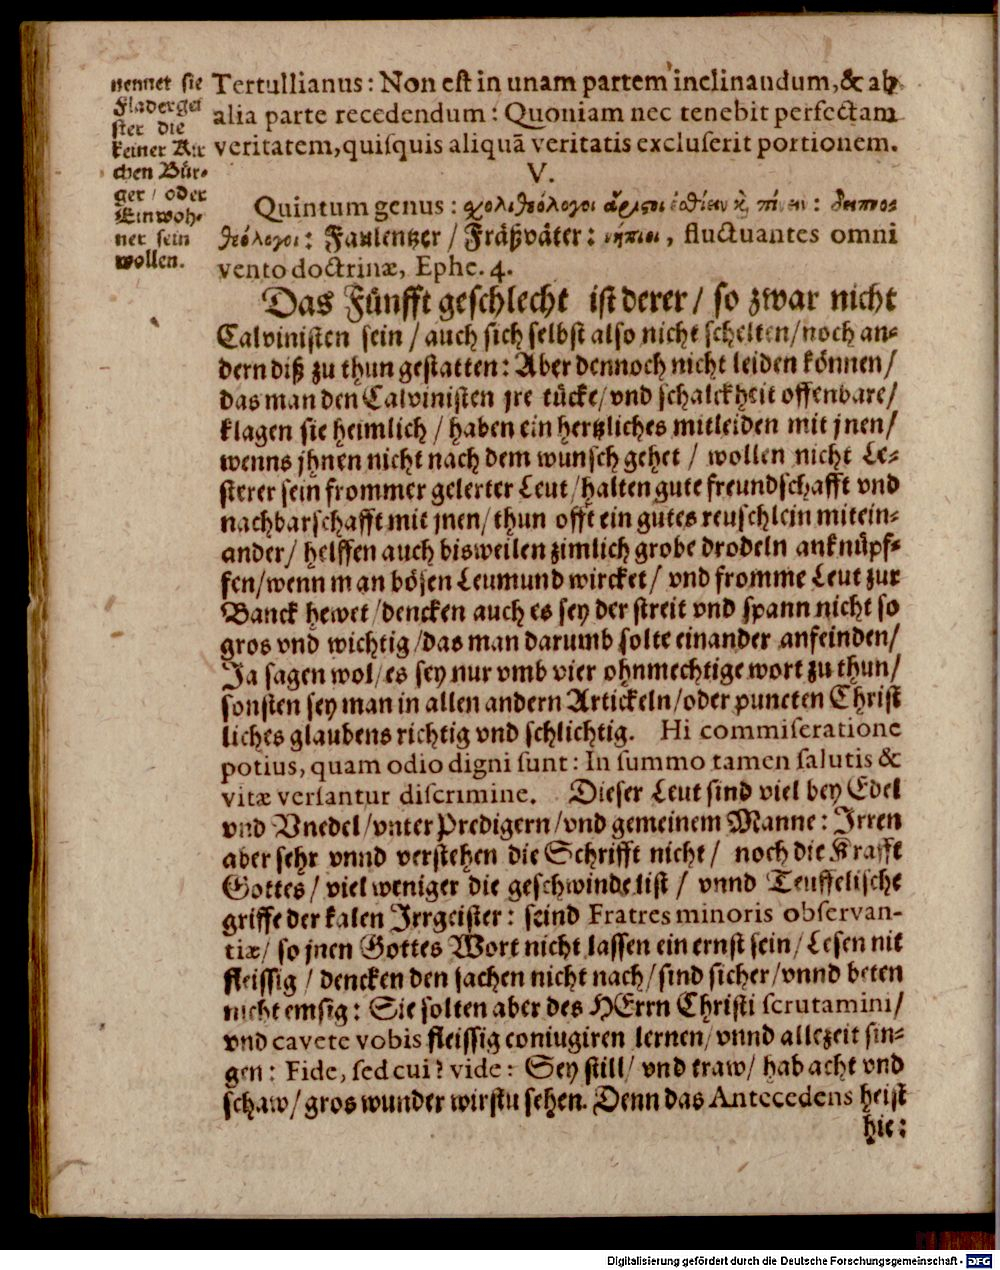 nennet sie
Fladergei
ster die
keiner Kir
chen Bür-
ger / oder
Einwoh-
ner sein
wollen.
Tertullianus: Non est in unam partem inclinandum, & ab
alia parte recedendum: Quoniam nec tenebit perfectam
veritatem, quisquis aliquā veritatis excluserit portionem.
V.
Quintum genus: χολιθεόλογοι ἄριστοι ἐσθίειν κ πίνειν: δειπνοσ
θεόλογοι: Faulentzer / Fräßväter: νήπιοι, fluctuantes omni
vento doctrinæ, Ephe. 4.
Das Fünfft geschlecht ist derer / so zwar nicht
Calvinisten sein / auch sich selbst also nicht schelten / noch an-
dern diß zu thun gestatten: Aber dennoch nicht leiden können /
das man den Calvinisten jre tücke / vnd schalckheit offenbare /
klagen sie heimlich / haben ein hertzliches mitleiden mit jnen /
wenns jhnen nicht nach dem wunsch gehet / wollen nicht Le-
sterer sein frommer gelerter Leut / halten gute freundschafft vnd
nachbarschafft mit jnen / thun offt ein gutes reuschlein mitein-
ander / helffen auch bisweilen zimlich grobe drodeln anknüpf-
fen / wenn man bösen Leumund wircket / vnd fromme Leut zur
Banck hewet / dencken auch es sey der streit vnd spann nicht so
gros vnd wichtig / das man darumb solte einander anfeinden /
Ja sagen wol / es sey nur vmb vier ohnmechtige wort zu thun /
sonsten sey man in allen andern Artickeln / oder puncten Christ
liches glaubens richtig vnd schlichtig. Hi commiseratione
potius, quam odio digni sunt: In summo tamen salutis &
vitæ versantur discrimine. Dieser Leut sind viel bey Edel
vnd Vnedel / vnter Predigern / vnd gemeinem Manne: Irren
aber sehr vnnd verstehen die Schrifft nicht / noch die Krafft
Gottes / viel weniger die geschwinde list / vnnd Teuffelische
griffe der kalen Irrgeister: seind Fratres minoris observan-
tiæ / so jnen Gottes Wort nicht lassen ein ernst sein / Lesen nit
fleissig / dencken den sachen nicht nach / sind sicher / vnnd beten
nicht emsig: Sie solten aber des HErrn Christi scrutamini /
vnd cavete vobis fleissig coniugiren lernen / vnnd allezeit sin-
gen: Fide, sed cui? vide: Sey still / vnd traw / hab acht vnd
schaw / gros wunder wirstu sehen. Denn das Antecedens heist
hie:
Digitalisierung gefördert durch die Deutsche Forschungsgemeinschaft - DFG